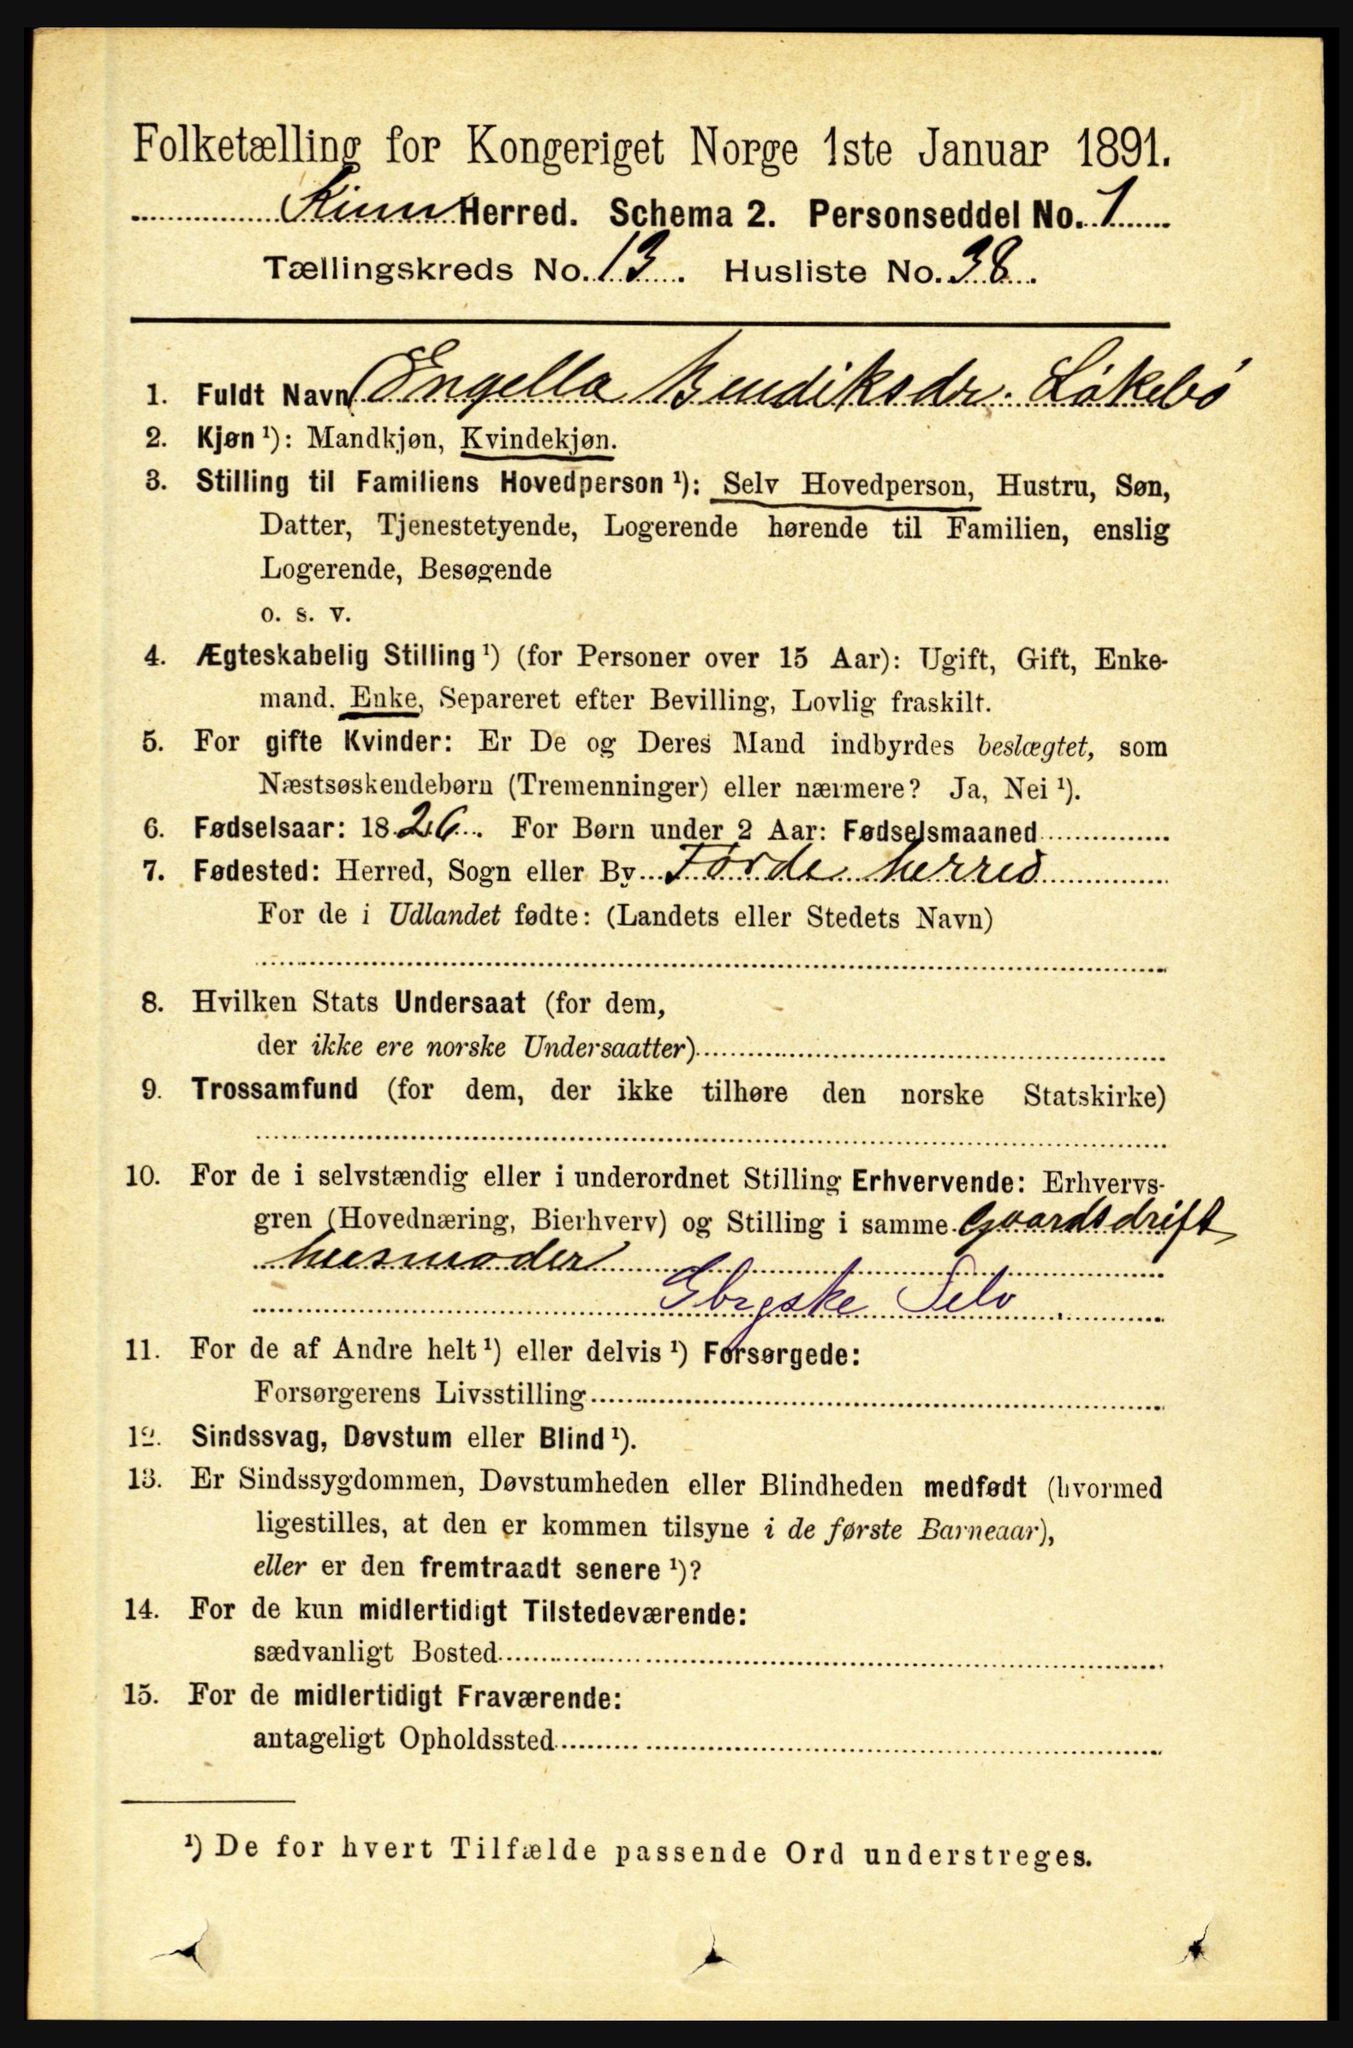 Folketælling for Kongeriget Norge 1ste Januar 1891.
Kinn Herred. Schema 2. Personseddel No. 1
Tællingskreds No. 13. Husliste No. 38.
1. Fuldt Navn Engella Bendiksdr. Løkebø
2. Kjøn ¹): Mandkjøn, Kvindekjøn.
3. Stilling til Familiens Hovedperson ¹): Selv Hovedperson, Hustru, Søn,
Datter, Tjenestetyende, Logerende hørende til Familien, enslig
Logerende, Besøgende
o. s. v.
4. Ægteskabelig Stilling ¹) (for Personer over 15 Aar): Ugift, Gift, Enke-
mand, Enke, Separeret efter Bevilling, Lovlig fraskilt.
5. For gifte Kvinder: Er De og Deres Mand indbyrdes beslægtet, som
Næstsøskendebørn (Tremenninger) eller nærmere? Ja, Nei ¹).
6. Fødselsaar: 1826. For Børn under 2 Aar: Fødselsmaaned
7. Fødested: Herred, Sogn eller By Førde herred
For de i Udlandet fødte: (Landets eller Stedets Navn)
8. Hvilken Stats Undersaat (for dem,
der ikke ere norske Undersaatter)
9. Trossamfund (for dem, der ikke tilhøre den norske Statskirke)
10. For de i selvstændig eller i underordnet Stilling Erhvervende: Erhvervs-
gren (Hovednæring, Bierhverv) og Stilling i samme Gaardsdrift
husmoder
Gbrgske Selv
11. For de af Andre helt ¹) eller delvis ¹) Forsørgede:
Forsørgerens Livsstilling
12. Sindssvag, Døvstum eller Blind ¹).
13. Er Sindssygdommen, Døvstumheden eller Blindheden medfødt (hvormed
ligestilles, at den er kommen tilsyne i de første Barneaar),
eller er den fremtraadt senere ¹)?
14. For de kun midlertidigt Tilstedeværende:
sædvanligt Bosted
15. For de midlertidigt Fraværende:
antageligt Opholdssted
¹) De for hvert Tilfælde passende Ord understreges.